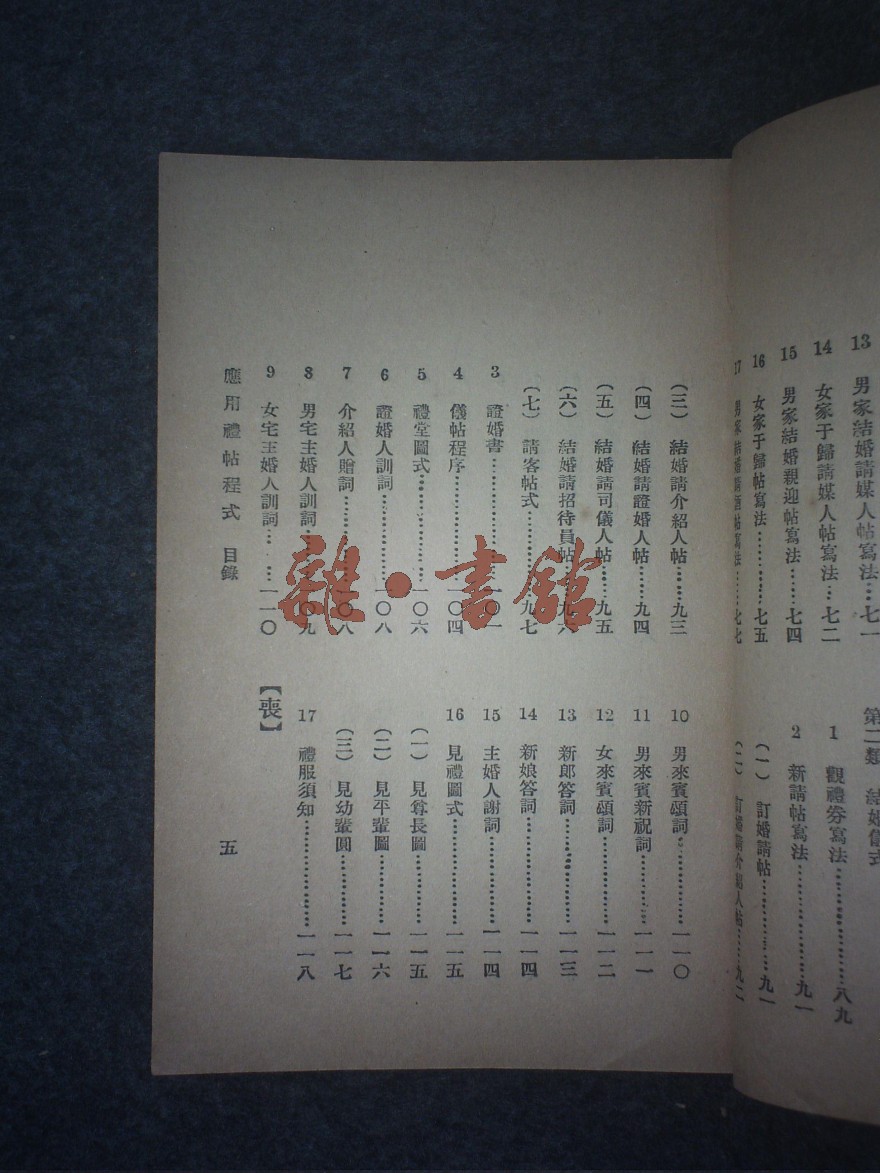 13 男家結婚請媒人帖寫法…七一
14 女家于歸請媒人帖寫法…七二
15 男家結婚親迎帖寫法……七四
16 女家于歸帖寫法…………七五
17 男家結婚 酒帖寫法……七七
第二類 結婚儀式
1 觀禮券寫法………………八九
2 新請帖寫法………………九一
(一) 訂婚請帖………………九一
(二) 訂婚請介紹人帖………九二
(三) 結婚請介紹人帖……九三
(四) 結婚請證婚人帖……九四
(五) 結婚請司儀人帖……九五
(六) 結婚請招待員帖……九六
(七) 請客帖式……………九七
3 證婚書……………………一〇一
4 儀帖程序…………………一〇四
5 禮堂圖式…………………一〇六
6 證婚人訓詞………………一〇八
7 介紹人贈詞………………一〇八
8 男宅主婚人訓詞…………一〇九
9 女宅主婚人訓詞…………一一〇
10 男來賓頌詞………………一一〇
11 男來賓新祝詞……………一一一
12 女來賓頌詞………………一一二
13 新郎答詞…………………一一三
14 新娘答詞…………………一一四
15 主婚人謝詞………………一一四
16 見禮圖式…………………一一五
(一) 見尊長圖……………一一五
(二) 見平輩圖……………一一六
(三) 見幼輩圓……………一一七
17 禮服須知…………………一一八
【喪】
應用禮帖程式 目錄
五
雜·書館